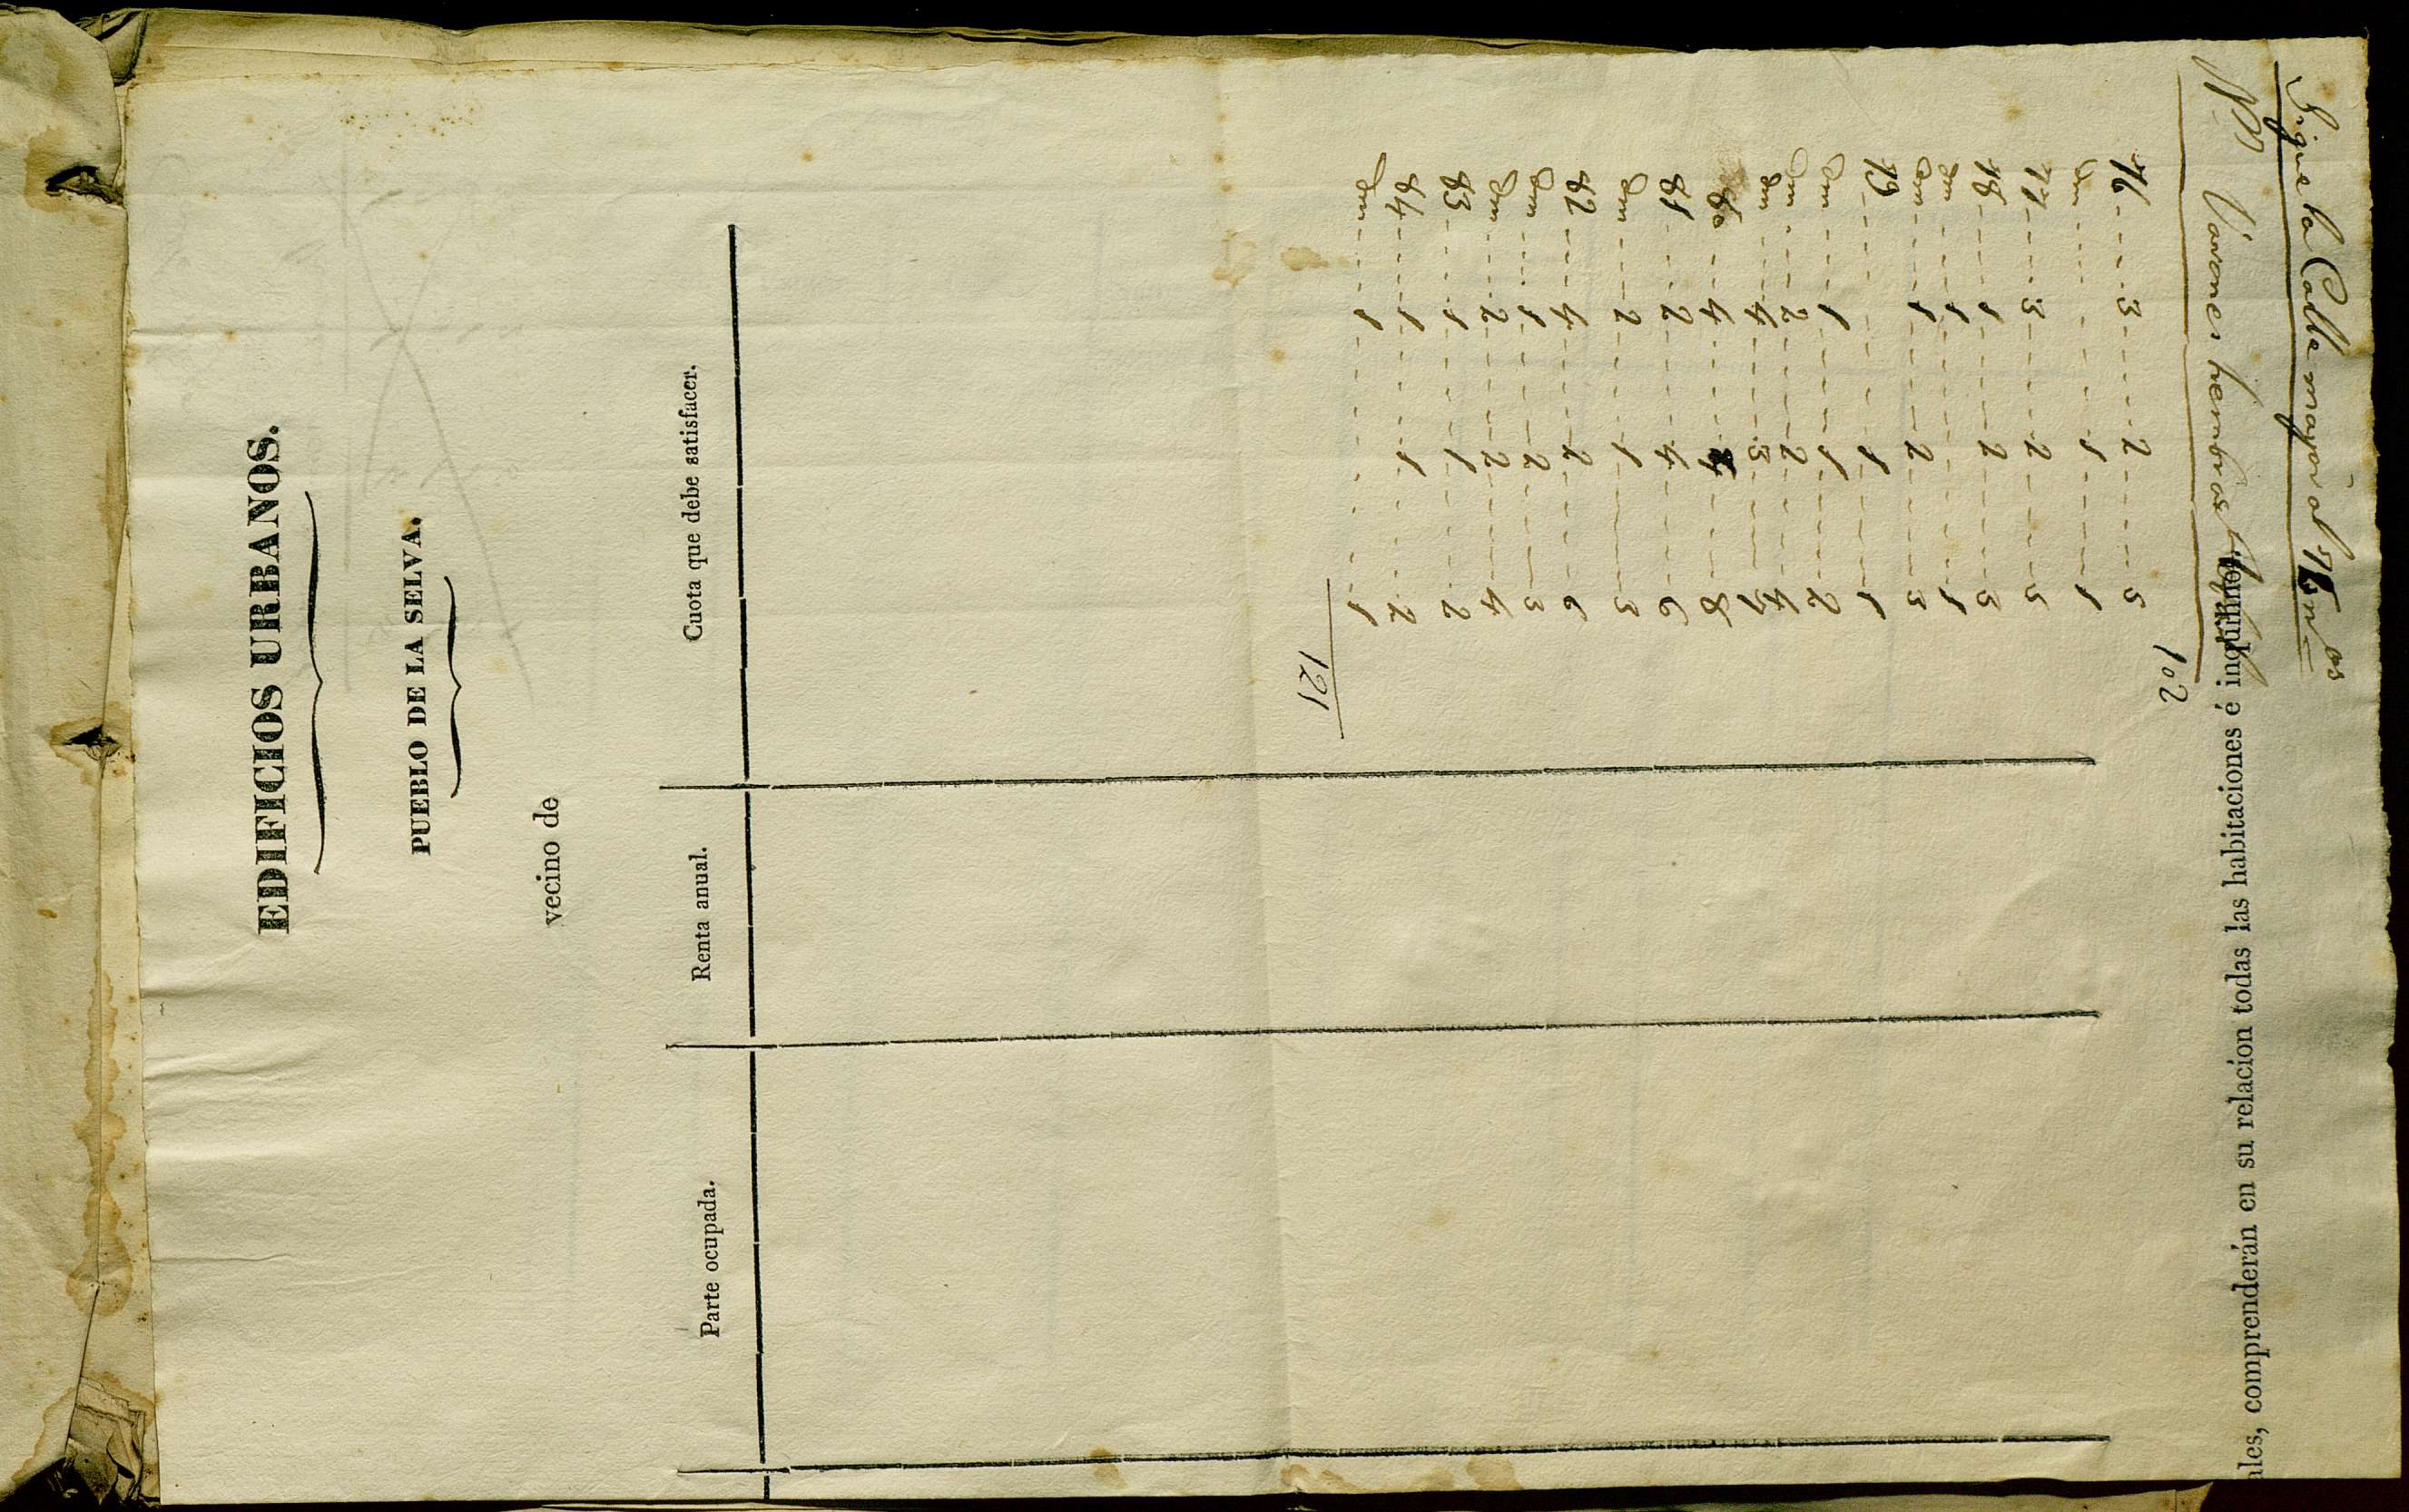 EDIFICIOS URBANOS.
PUEBLO DE LA SELVA.
vecino de
Parte ocupada. Renta anual. Cuota que debe satisfacer.
ales, comprenderán en su relacion todas las habitaciones é inquilinos
Sigue la Calle mayor al
Nº Varones hembras
102
76 3 2 5
Idm 1 1
77 3 2 5
78 1 2 3
Idm 1 1
Idm 1 2 3
79 1 1
Idm 1 1 2
Idm 2 2 4
Idm 4 3 7
80 4 4 8
81 2 4 6
Idm 2 1 3
82 4 2 6
Idm 1 2 3
Idm 2 2 4
83 1 1 2
84 1 1 2
Idm 1 1
121